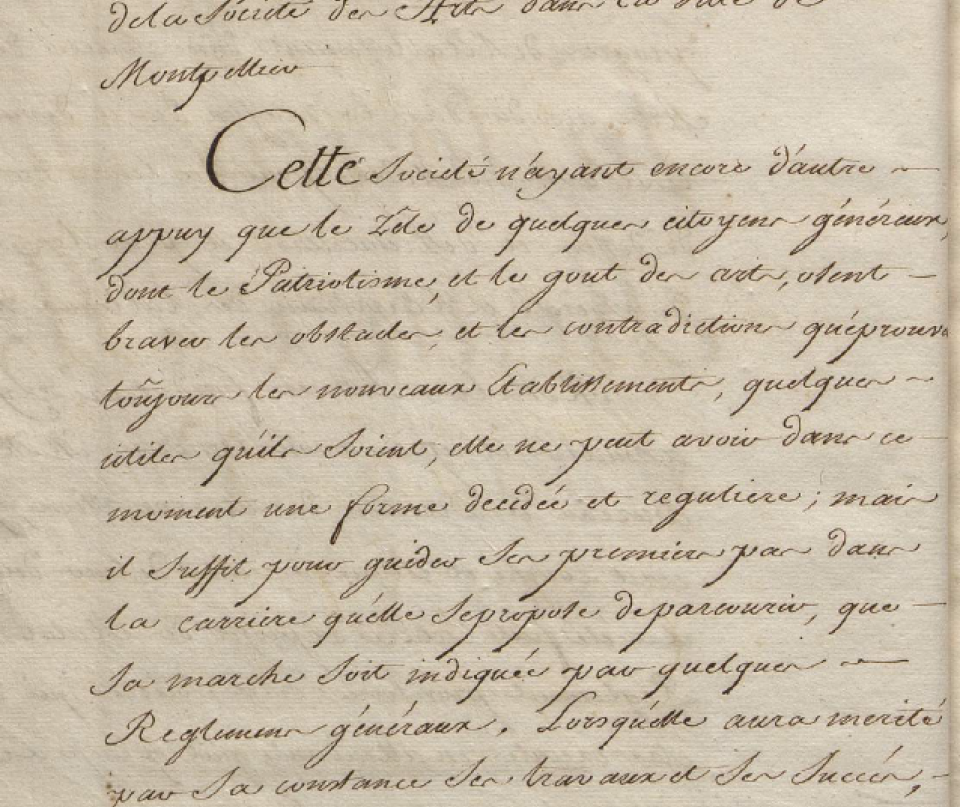 de la Société des Arts dans la ville de
Montpellier
Cette Société n'ayant encore d'autre
appuy que le Zéle de quelques citoyens généreux,
dont le Patriotisme, et le gout des arts, osent
braver les obstacles, et les contradictions qu'éprouve
toûjours les nouveaux Etablissements, quelques
utiles qu'ils soient, elle ne peut avoir dans ce
moment une forme decidée et reguliere ; mais
il suffit pour guider ses premiers pas dans
la carriere qu'elle se propose de parcourir, que
sa marche soit indiquée par quelques
Reglemens généraux. Lorsqu'elle aura merité
par sa constance ses travaux et ses succés,